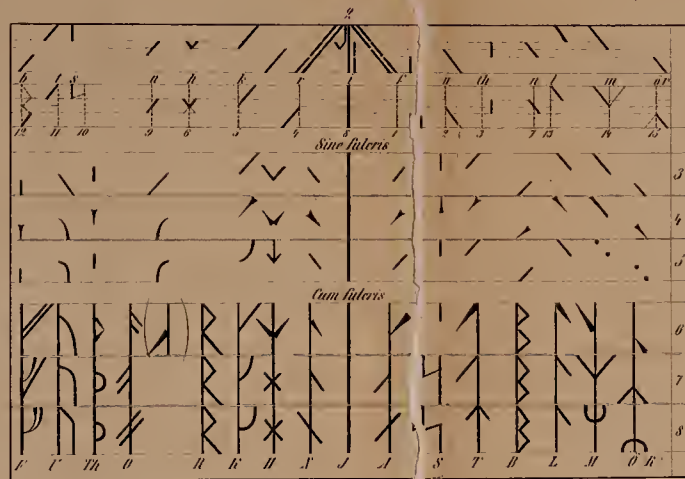 2
b t s a h k r i f u th n l m or
12 11 10 9 6 3 4 8 1 2 3 7 13 14 15
Sine fulcris
3
4
5
Cum fulcris
6
7
8
F U Th O R K H N J A S T B L M Ö R